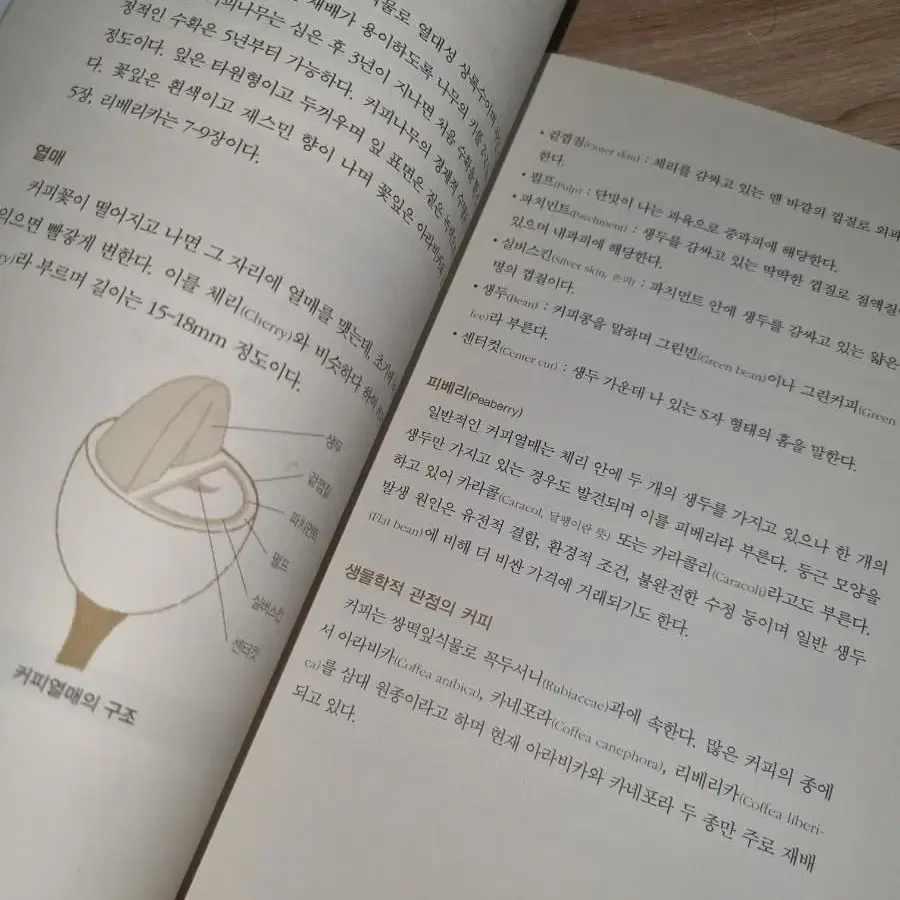 식물로 열대성 상록수이며
재배가 용이하도록 나무의 키를
커피나무는 심은 후 3년이 지나면 처음 수확을
정적인 수확은 5년부터 가능하다. 커피나무의 경제적 수명은
정도이다. 잎은 타원형이고 두꺼우며 잎 표면은 짙은
다. 꽃잎은 흰색이고 재스민 향이 나며 꽃잎은 아라비카
5장, 리베리카는 7-9장이다.
열매
커피꽃이 떨어지고 나면 그 자리에 열매를 맺는데, 초기에
익으면 빨갛게 변한다. 이를 체리(Cherry)와 비슷하다 하여
라 부르며 길이는 15-18mm 정도이다.
생두
겉껍질
파치먼트
펄프
실버스킨
센터컷
커피열매의 구조
• 겉껍질(Outer skin) : 체리를 감싸고 있는 맨 바깥의 껍질로 외과
한다.
• 펄프(Pulp) : 단맛이 나는 과육으로 중과피에 해당한다.
• 파치먼트(Parchment) : 생두를 감싸고 있는 딱딱한 껍질로 점액질
있으며 내과피에 해당한다.
• 실버스킨(Silver skin, 은피) : 파치먼트 안에 생두를 감싸고 있는 얇은
명의 껍질이다.
• 생두(Bean) : 커피콩을 말하며 그린빈(Green bean)이나 그린커피(Green
ee)라 부른다.
• 센터컷(Center cut) : 생두 가운데 나 있는 S자 형태의 홈을 말한다.
피베리(Peaberry)
일반적인 커피열매는 체리 안에 두 개의 생두를 가지고 있으나 한 개의
생두만 가지고 있는 경우도 발견되며 이를 피베리라 부른다. 둥근 모양을
하고 있어 카라콜(Caracol, 달팽이란 뜻) 또는 카라콜리(Caracoli)라고도 부른다.
발생 원인은 유전적 결함, 환경적 조건, 불완전한 수정 등이며 일반 생두
(Flat bean)에 비해 더 비싼 가격에 거래되기도 한다.
생물학적 관점의 커피
커피는 쌍떡잎식물로 꼭두서니(Rubiaceae)과에 속한다. 많은 커피의 종에
서 아라비카(Coffea arabica), 카네포라(Coffea canephora), 리베리카(Coffea liberi-
ca)를 삼대 원종이라고 하며 현재 아라비카와 카네포라 두 종만 주로 재배
되고 있다.